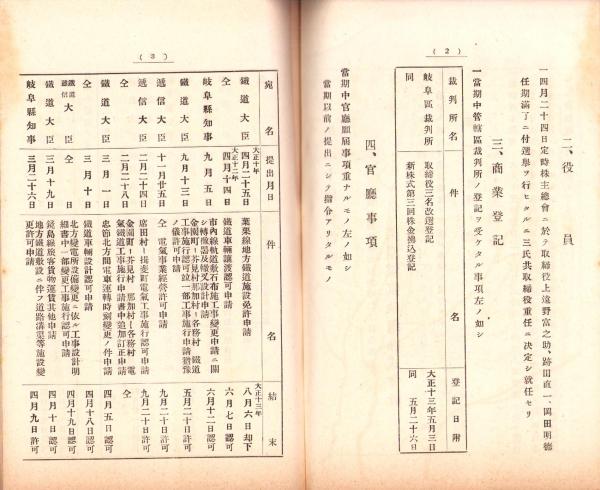 (2)
二、役員
一四月二十四日定時株主總會ニ於テ取締役上遠野富之助、跡田直一、岡田明德
任期滿了ニ付選擧ヲ行ヒタルニ三氏共取締役重任ニ決定シ就任セリ
三、商業登記
一當期中管轄區裁判所ノ登記ヲ受ケタル事項左ノ如シ
裁判所名 件名 登記日附
岐阜區裁判所 取締役三名改選登記 大正十三年五月三日
同 新株式第三回株金拂込登記 同 五月二十六日
四、官廳事項
當期中官廳願屆事項重ナルモノ左ノ如シ
當期以前ノ提出ニシテ指令アリタルモノ
(3)
宛名 提出月日 件名 結末
鐵道大臣 大正十年四月二十五日 葉栗線地方鐵道施設免許申請 大正十三年八月六日却下
仝 大正十二年四月十四日 鐵道車輛讓渡認可申請 六月七日認可
岐阜縣知事 九月五日 市內線軌道敷石布施工事變更申請ニ關シ轉轍器及轍叉設計申請 六月十二日認可
鐵道大臣 九月十三日 金園町ー芥見村那加村ー各務村 鐵道工事施行認可竝一部工事施行申請猶豫ノ儀許可申請 五月二十日許可
遞信大臣 十一月廿五日 仝 電氣事業經營許可申請 九月二十日許可
遞信大臣 二月二十四日 席田村ー揖斐町電氣工事施行認可申請 九月二十日許可
仝 二月二十八日 金園町ー芥見村 那加村ー各務村 電氣鐵道工事施行申請書中追加訂正申請 仝
鐵道大臣 三月一日 忠節北方間電車運轉時刻變更ノ件申請 四月五日認可
仝 三月十日 鐵道車輛設計認可申請 四月十八日認可
鐵道遞信大臣 仝 一日 北方變電所設備變更ニ依ル工事設計明細書中一部變更工事施行認可申請 四月十九日認可
鐵道大臣 三月十九日 鏡島線旅客貨物運賃其他申請 四月十日認可
岐阜縣知事 三月二十六日 地方鐵道敷設ニ伴フ道路溝渠等施設變更許可申請 四月九日許可